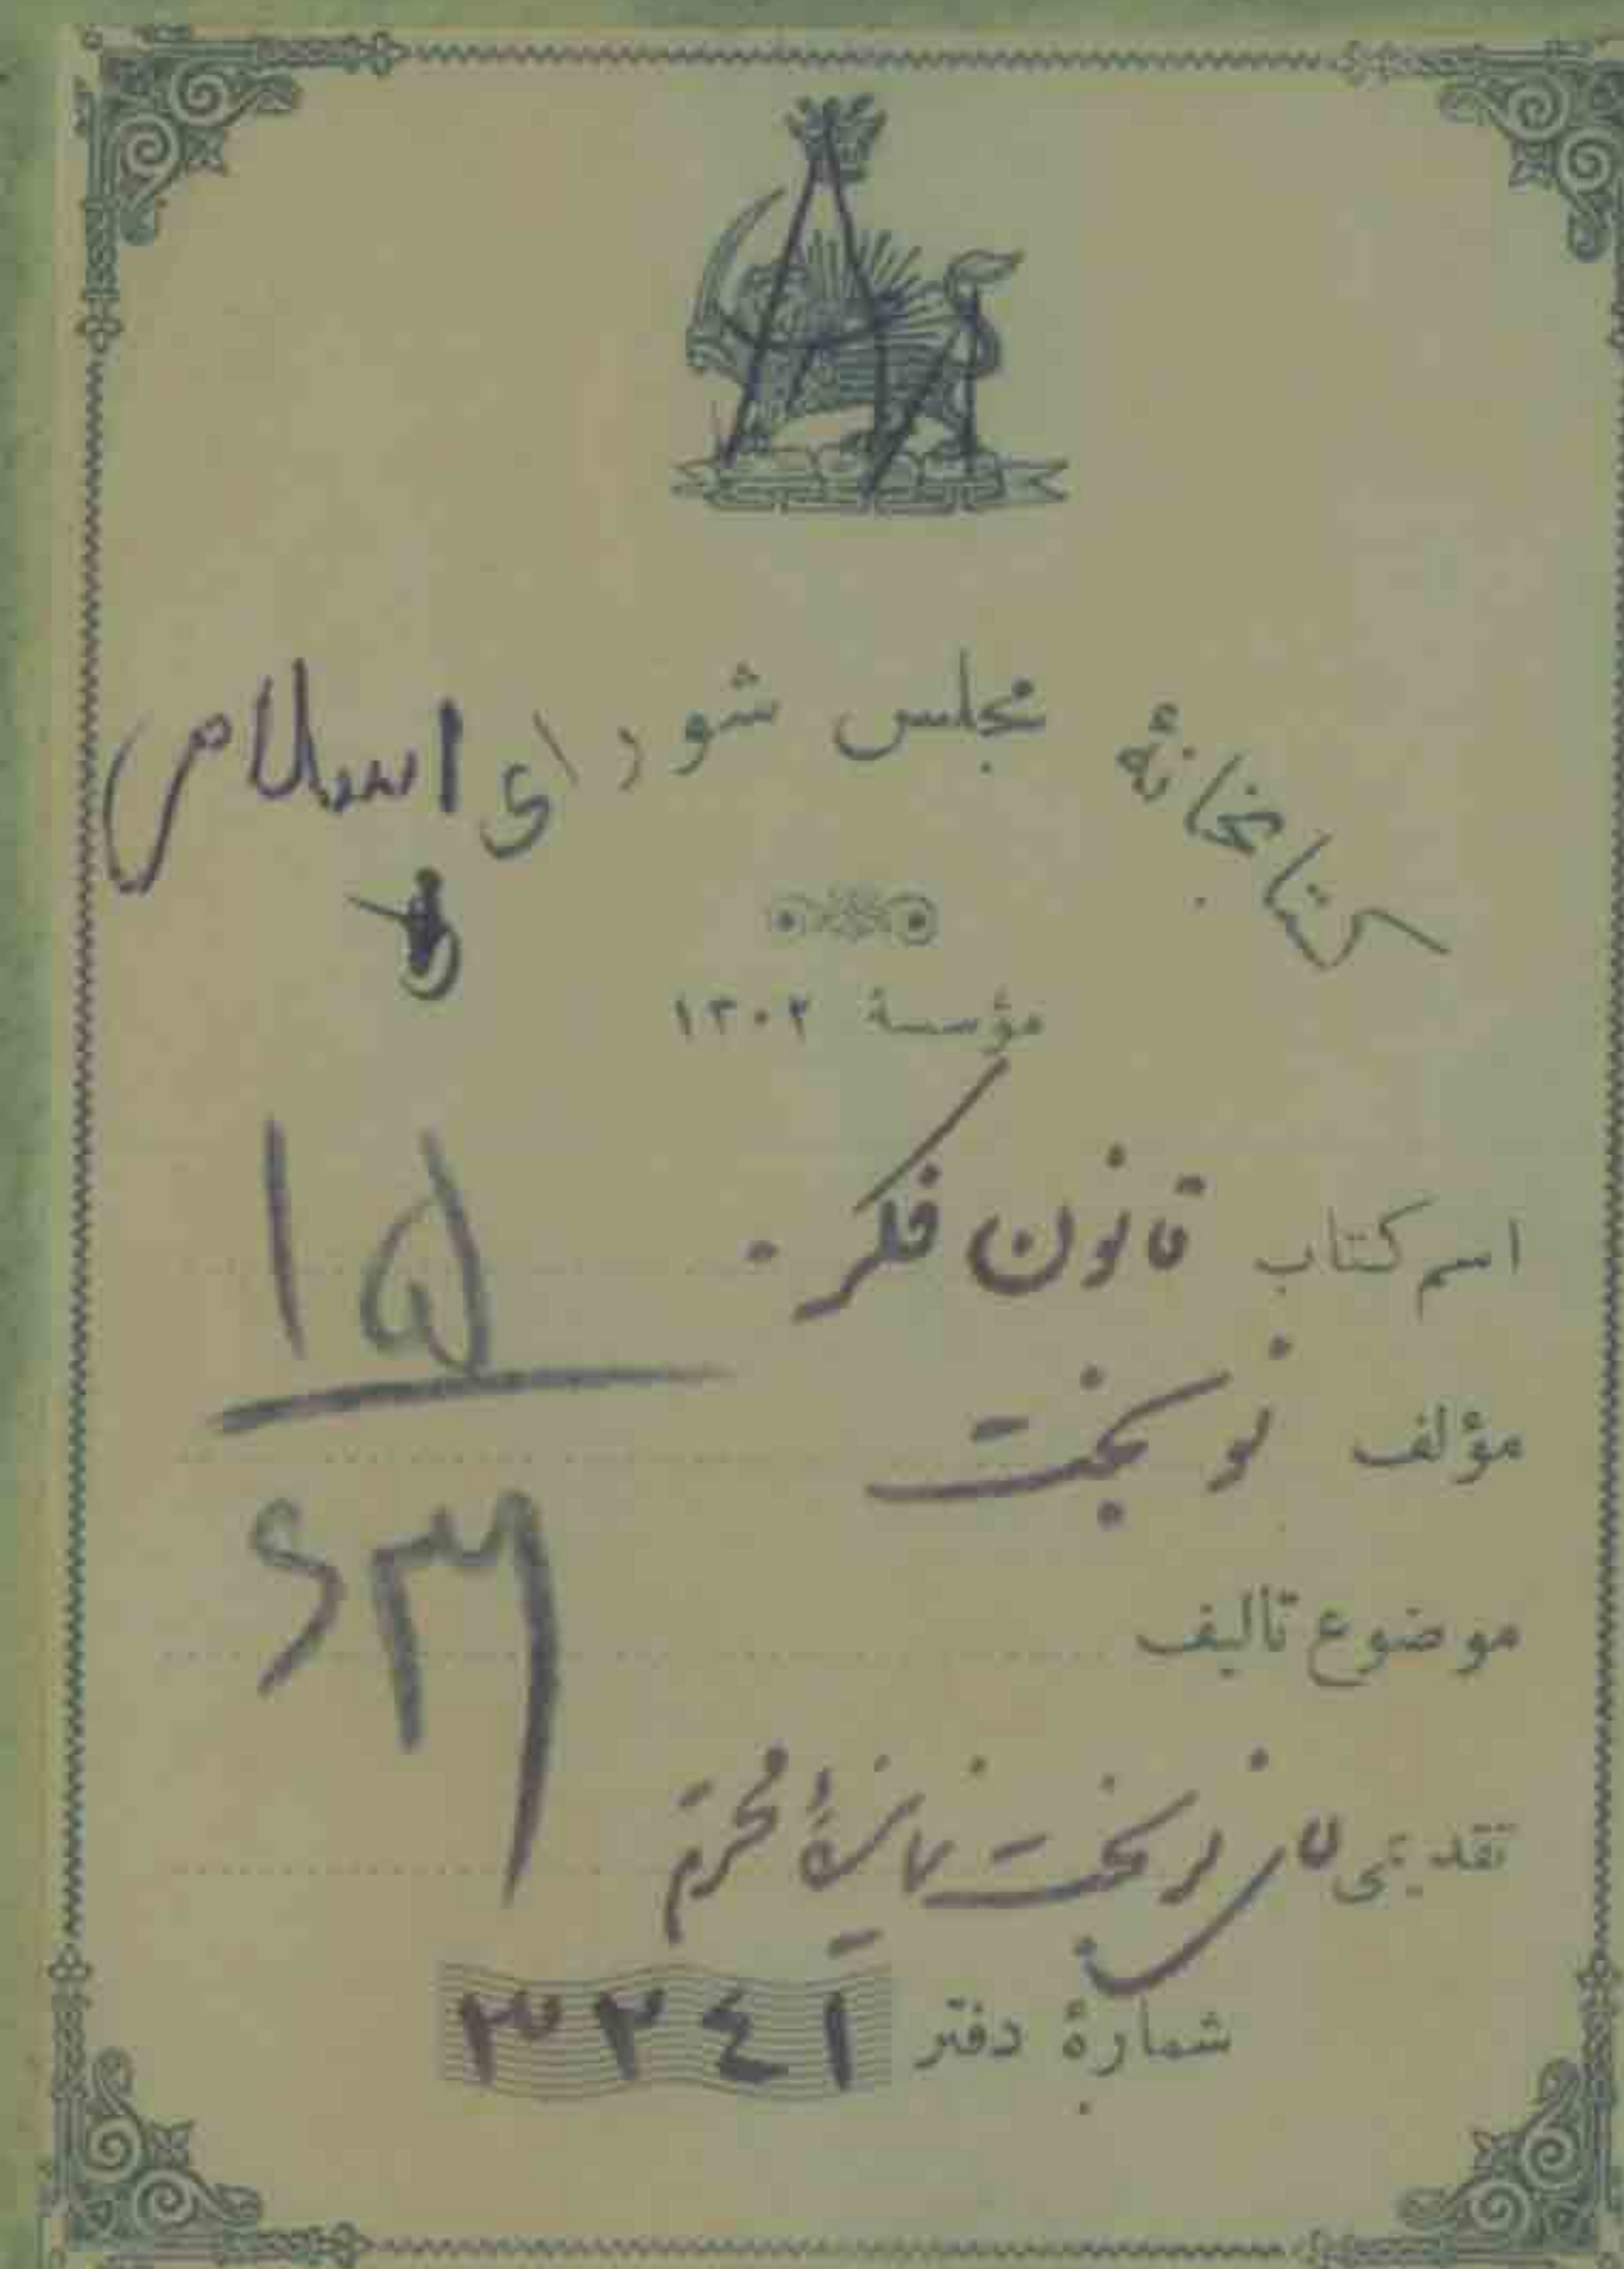 کتابخانهٔ مجلس شورای اسلامی
مؤسسهٔ ۱۳۰۲
اسم کتاب قانون فکر.
مؤلف نوبخت
موضوع تألیف
تقدیمی آقای نوبخت نمایندهٔ محترم
شمارهٔ دفتر ۳۲٤۱
۱۵
۶۳